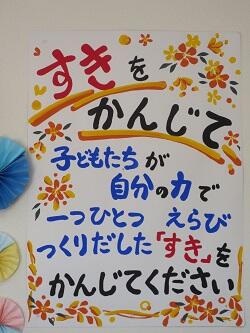 すきを
かんじて
子どもたちが
自分の力で
一つひとつ えらび
つくりだした「すき」を
かんじてください